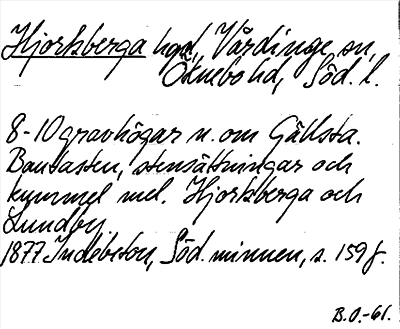 Hjorksberga hgd, Vårdinge sn,
Öknebo hd, Söd. l.
8-10 gravhögar n. om Gällsta.
Bautasten, stensättningar och
kummel mel. Hjorksberga och
Lundby.
1877 Indebetou, Söd. minnen, s. 159 f.
B.O.-61.